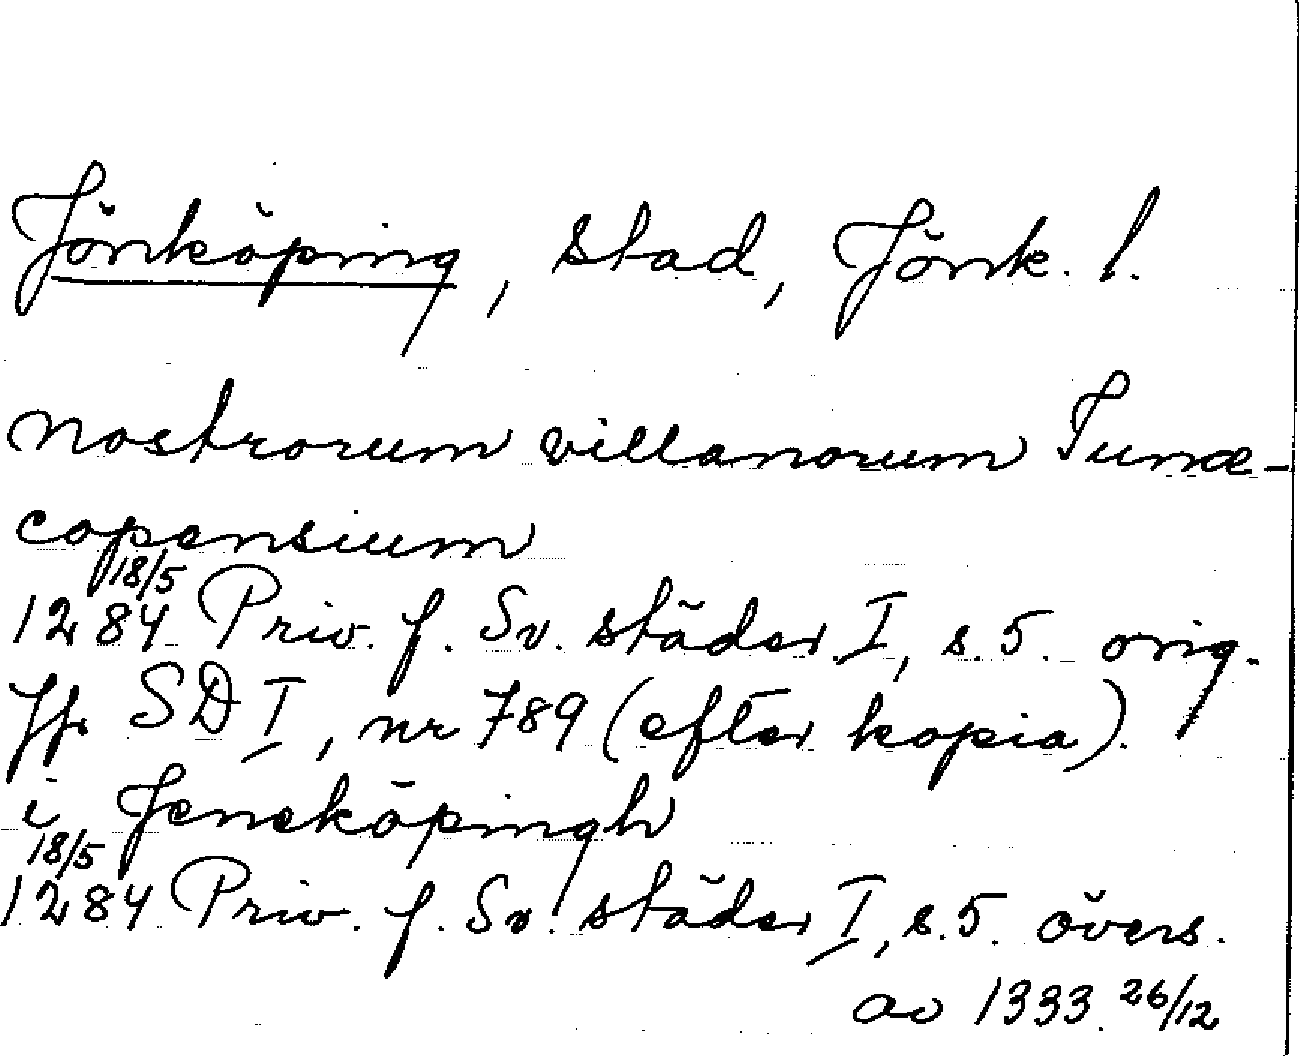 Jönköping, stad, Jönk. l.
nostrorum villanorum Junæ-
copensium
18/5
1284 Priv. f. Sv. städer I, s. 5. orig.
Jfr SD I, nr 789 (efter kopia).
i Jeneköpingh
18/5
1284 Priv. f. Sv. städer I, s. 5. övers.
av 1333 26/12